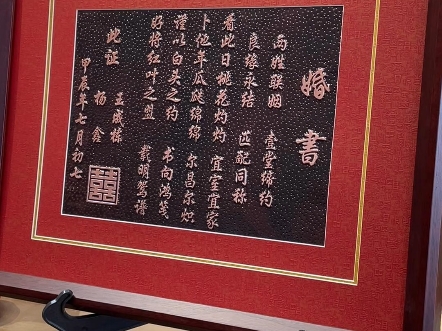 婚書
两姓联姻 壹堂缔约
良缘永结 匹配同称
看此日桃花灼灼 宜室宜家
卜他年瓜瓞绵绵 尔昌尔炽
谨以白头之约 书向鸿笺
好将红叶之盟 载明鸳谱
此证
王成栋
杨鑫
甲辰年七月初七
囍